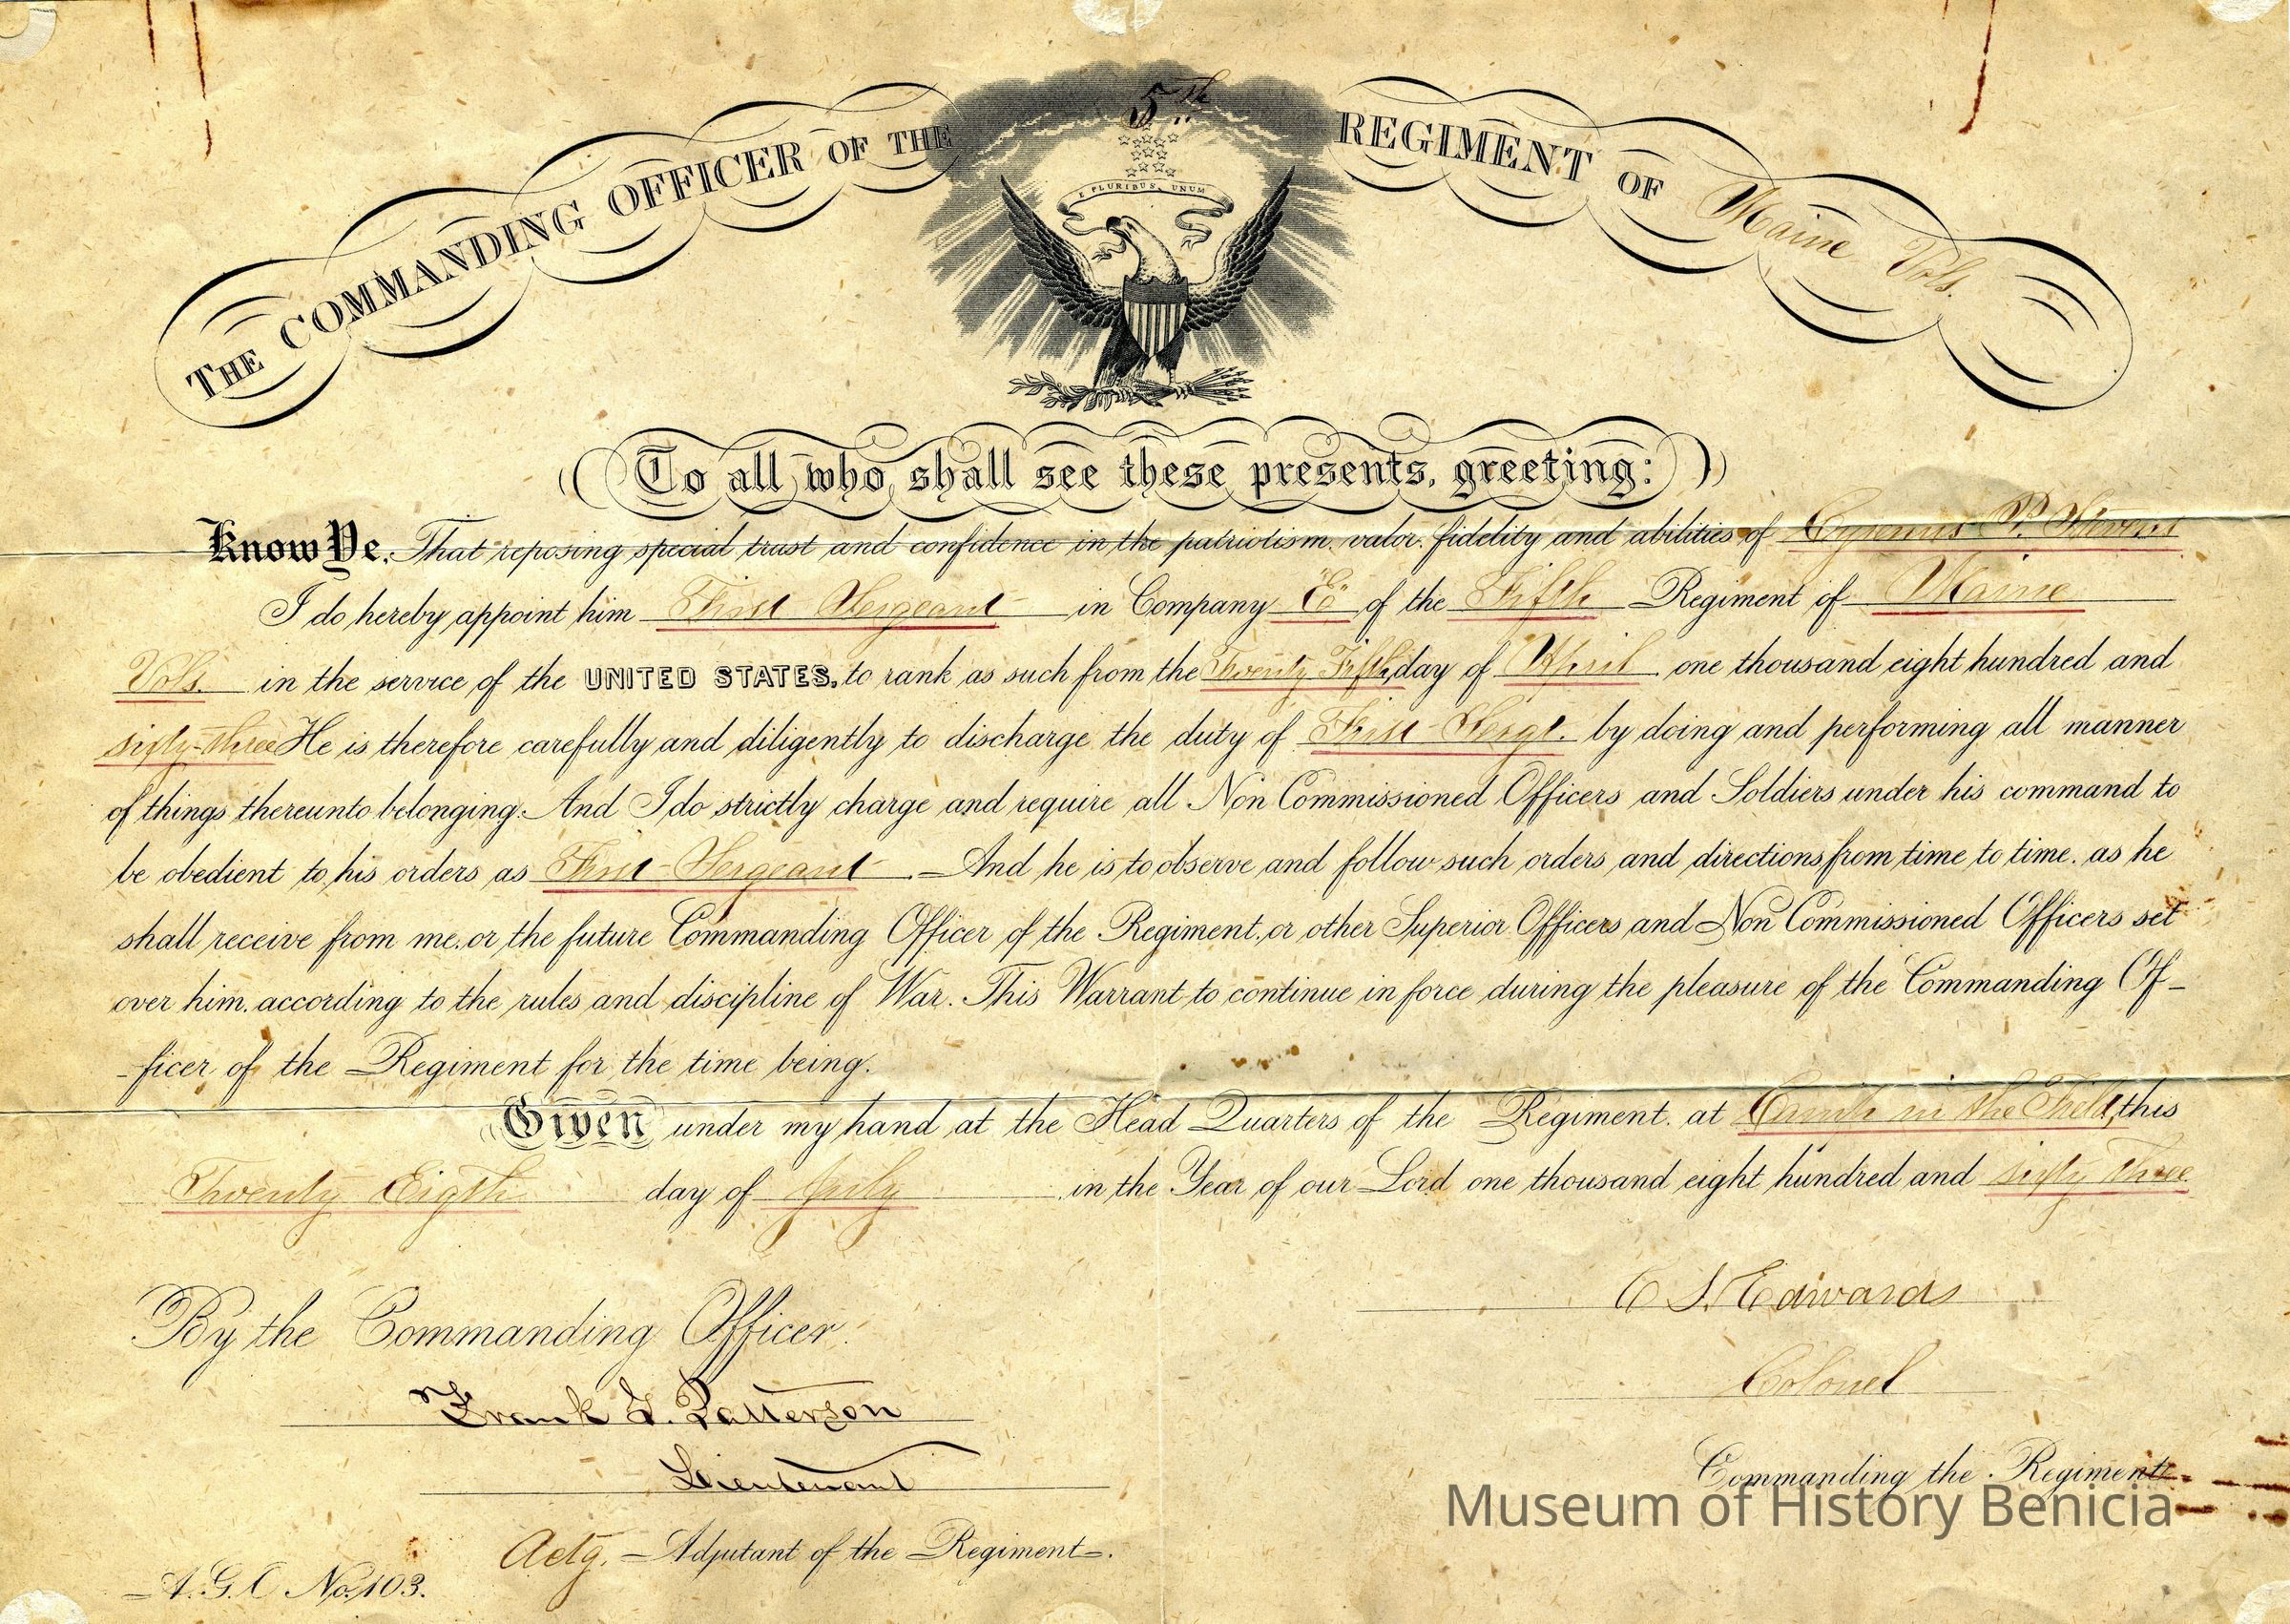 THE COMMANDING OFFICER OF THE 5th REGIMENT OF Maine Vols.
E PLURIBUS UNUM
To all who shall see these presents, greeting:
Know Ye, That reposing special trust and confidence in the patriotism, valor, fidelity and abilities of Cyrenus P. Stevens
I do hereby appoint him First Sergeant in Company "E" of the Fifth Regiment of Maine
Vols. in the service of the UNITED STATES, to rank as such from the Twenty Fifth day of April one thousand eight hundred and
sixty-three He is therefore carefully and diligently to discharge the duty of First Sergt. by doing and performing all manner
of things thereunto belonging. And I do strictly charge and require all Non Commissioned Officers and Soldiers under his command to
be obedient to his orders as First Sergeant. And he is to observe and follow such orders and directions from time to time, as he
shall receive from me, or the future Commanding Officer of the Regiment, or other Superior Officers and Non Commissioned Officers set
over him, according to the rules and discipline of War. This Warrant to continue in force during the pleasure of the Commanding Of-
-ficer of the Regiment for the time being.
Given under my hand at the Head Quarters of the Regiment, at Camp in the Field, this
Twenty Eigth day of July in the Year of our Lord one thousand eight hundred and sixty three.
C S. Edwards
By the Commanding Officer.
Colonel
Frank L. Patterson
Lieutenant
Commanding the Regiment.
Museum of History Benicia
Actg. Adjutant of the Regiment.
A. G. O No. 103.